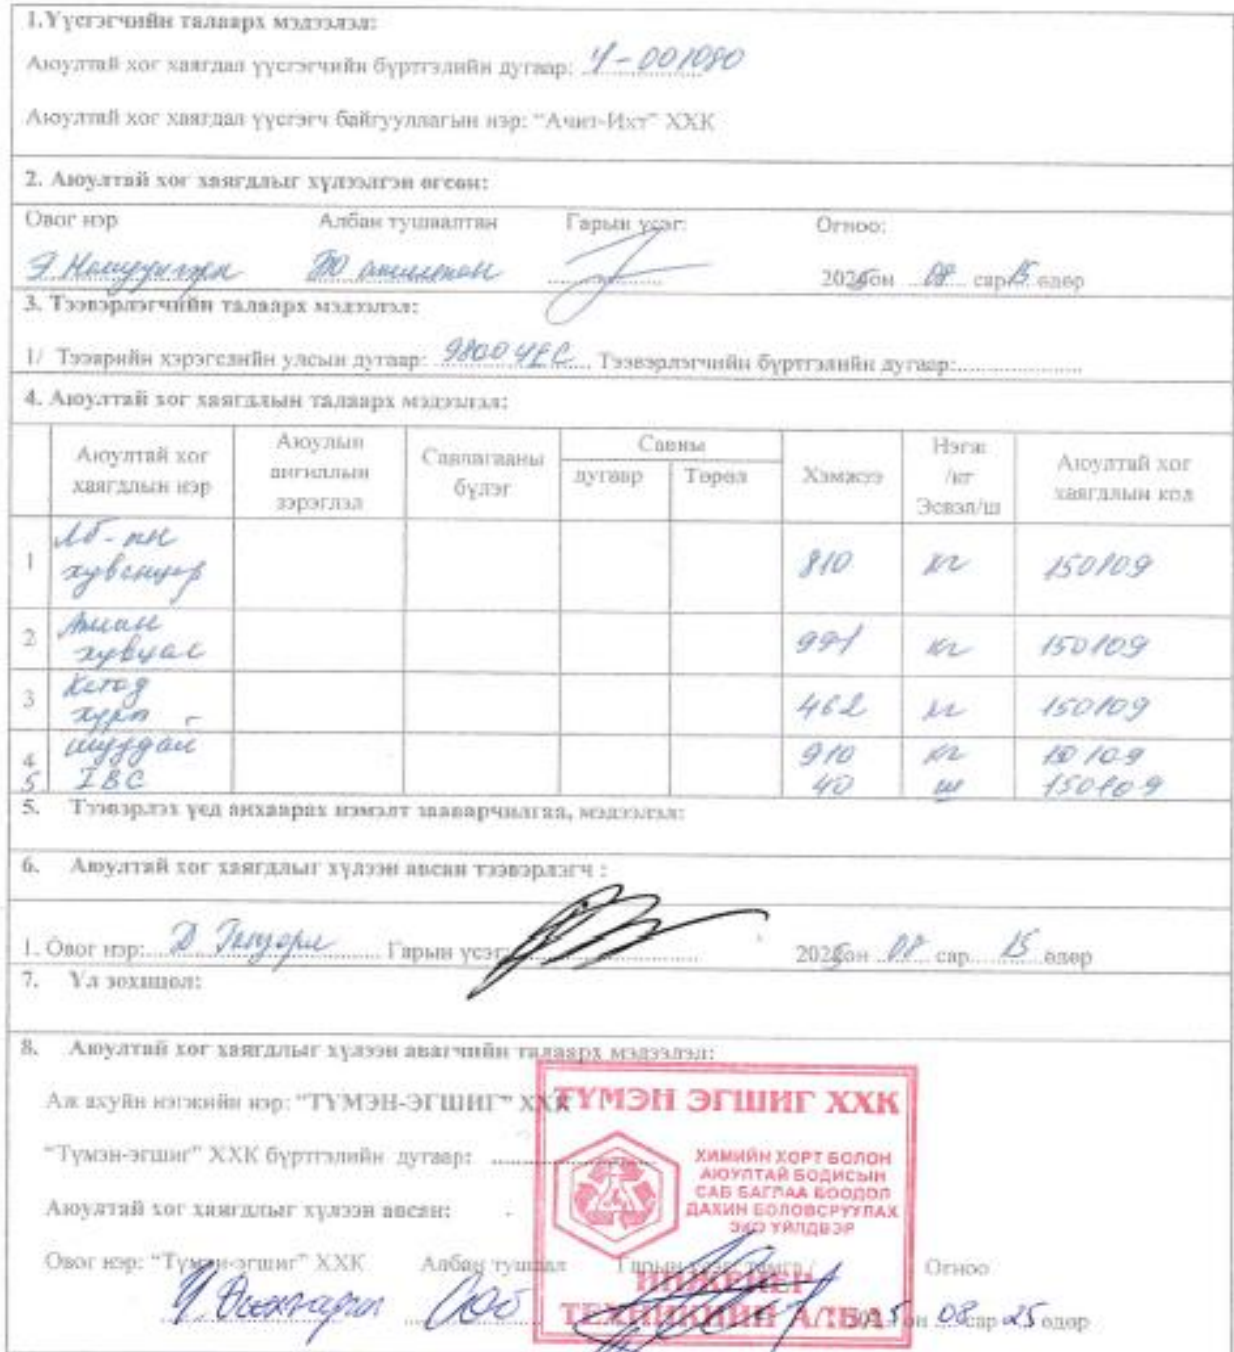 1.Үүсгэгчийн талаарх мэдээлэл:
Аюултай хог хаягдал үүсгэгчийн бүртгэлийн дугаар: Ү-001080
Аюултай хог хаягдал үүсгэгч байгууллагын нэр: “Ачит-Ихт” ХХК
2. Аюултай хог хаягдлыг хүлээлгэн өгсөн:
Овог нэр Албан тушаалтан Гарын үсэг: Огноо:
Э. 202 он 08 сар 15 өдөр
3. Тээвэрлэгчийн талаарх мэдээлэл:
1/ Тээврийн хэрэгслийн улсын дугаар: 9800 УЕС Тээвэрлэгчийн бүртгэлийн дугаар:
4. Аюултай хог хаягдлын талаарх мэдээлэл:
Аюултай хог хаягдлын нэр Аюулын ангиллын зэрэглэл Савлагааны бүлэг Савны дугаар Төрөл Хэмжээ Нэгж /кг Эсвэл/ш Аюултай хог хаягдлын код
1 хувенцэр 810 кг 150109
2 Ажлын хувцас 991 кг 150109
3 Катод хуяг 462 кг 150109
4 шуудай 910 кг 109
5 IBC 40 ш 150109
5. Тээвэрлэх үед анхаарах нэмэлт зааварчилгаа, мэдээлэл:
6. Аюултай хог хаягдлыг хүлээн авсан тээвэрлэгч :
1. Овог нэр: Д. Гарын үсэг: 202 он 08 сар 15 өдөр
7. Үл зохицол:
8. Аюултай хог хаягдлыг хүлээн авагчийн талаарх мэдээлэл:
Аж ахуйн нэгжийн нэр: “ТҮМЭН-ЭГШИГ” ХХК
“Түмэн-эгшиг” ХХК бүртгэлийн дугаар:
Аюултай хог хаягдлыг хүлээн авсан:
Овог нэр: “Түмэн-эгшиг” ХХК Албан тушаал Гарын үсэг, тамга / Огноо
2025 он 08 сар 25 өдөр
ТҮМЭН ЭГШИГ ХХК
ХИМИЙН ХОРТ БОЛОН
АЮУЛТАЙ БОДИСЫН
САВ БАГЛАА БООДОЛ
ДАХИН БОЛОВСРУУЛАХ
ЭКО ҮЙЛДВЭР
ИНЖЕНЕР
ТЕХНИКИЙН АЛБА